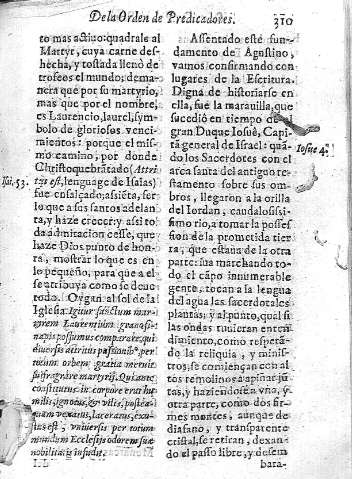 De la Orden de Predicadores. 310
to mas actiuo: quadrale al
Martyr, cuya carne des-
hecha, y tostada lleno de
trofeos el mundo; dema-
nera que por su martyrio,
mas que por el nombre,
es Laurencio, laurel, sym-
bolo de gloriosos venci-
mientos: porque el mis-
mo camino, por donde
Christo quebratado (Attri-
tus est, lenguage de Isaias)
fue ensalçado; assiera, ser
lo que a sus santos adelan
ta, y haze crecer: y assi to
da admiracion cesse, que
haze Dios punto de hon-
ra, mostrar lo que es en
lo pequeño, para que a el
se atribuya como se deue
todo. Oygan al sol de la
Iglesia: Igitur sanctum mar-
tyrem Laurentium grano si-
napis possumus comparare, qui
diuersis attritus passionib9, per
totum orbem gratia meruit
suffragrare martyrij. Qui ante
constitutus in corpore erat hu-
milis, ignotus, & vilis, postea-
quam vexatus, laceratus, exus-
tus est, vniuersis per totum
mundum Ecclesijs odorem suæ
nobilitatis infudit.
Isai. 53.
Assentado este fun-
damento de Agustino,
vamos confirmando con
lugares de la Escritura.
Digna de historiarse en
ella, fue la marauilla, que
sucediò en tiempo de
gran Duque Iosuè, Capi-
tã general de Israel: quã-
do los Sacerdotes con el
arca santa del antiguo te-
stamento sobre sus om-
bros, llegaron a la orilla
del Iordan, caudalosissi-
simo rio, a tomar la posses
sion de la prometida tier
ra, que estaua de la otra
parte: sua marchando to-
do el cãpo innumerable
gente, tocan a la lengua
del agua las sacerdotales
plantas; y al punto, qual si
las ondas tuuieran enten
dimiento, como respetã-
do la reliquia, y minis-
tros, se comiençan con al
tos remolinos a apiñar jũ-
tas, y haziendose a vna, y
otra parte, como dos fir-
mes montes, aunque de
diafano, y transparente
cristal, se retiran, dexan-
do el passo libre, y desem
bara-
Iosue 4.